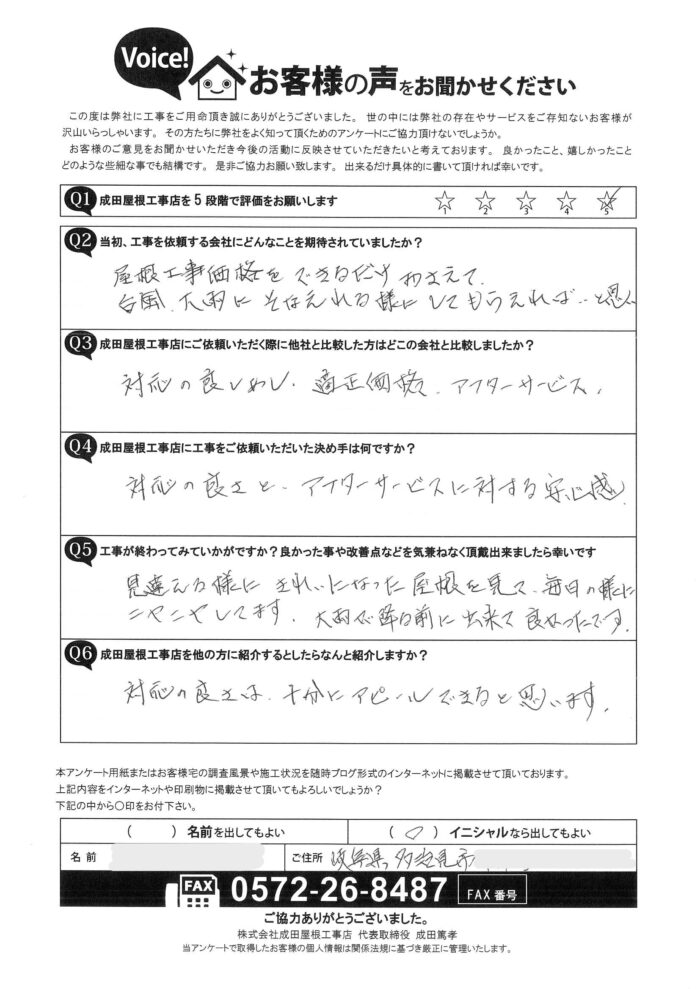 Voice!
お客様の声をお聞かせください
この度は弊社に工事をご用命頂き誠にありがとうございました。 世の中には弊社の存在やサービスをご存知ないお客様が
沢山いらっしゃいます。 その方たちに弊社をよく知って頂くためのアンケートにご協力頂けないでしょうか。
お客様のご意見をお聞かせいただき今後の活動に反映させていただきたいと考えております。 良かったこと、嬉しかったこと
どのような些細な事でも結構です。 是非ご協力お願い致します。 出来るだけ具体的に書いて頂ければ幸いです。
Q1 成田屋根工事店を5段階で評価をお願いします
1 2 3 4 5
Q2 当初、工事を依頼する会社にどんなことを期待されていましたか？
屋根工事価格をできるだけおさえて、
台風、大雨にそなえれる様にしてもらえれば…と思い
Q3 成田屋根工事店にご依頼いただく際に他社と比較した方はどこの会社と比較しましたか？
対応の良し、適正価格、アフターサービス、
Q4 成田屋根工事店に工事をご依頼いただいた決め手は何ですか？
対応の良さと、アフターサービスに対する安心感
Q5 工事が終わってみていかがですか？良かった事や改善点などを気兼ねなく頂戴出来ましたら幸いです
見違える様にきれいになった屋根を見て、毎日の様に
ニヤニヤしてます。大雨が降る前に出来て良かったです。
Q6 成田屋根工事店を他の方に紹介するとしたらなんと紹介しますか？
対応の良さは、十分にアピールできると思います。
本アンケート用紙またはお客様宅の調査風景や施工状況を随時ブログ形式のインターネットに掲載させて頂いております。
上記内容をインターネットや印刷物に掲載させて頂いてもよろしいでしょうか？
下記の中から〇印をお付下さい。
（ ）名前を出してもよい （〇）イニシャルなら出してもよい
名前 ご住所 岐阜県、多治見市
FAX 0572-26-8487 FAX番号
ご協力ありがとうございました。
株式会社成田屋根工事店 代表取締役 成田篤孝
当アンケートで取得したお客様の個人情報は関係法規に基づき厳正に管理いたします。